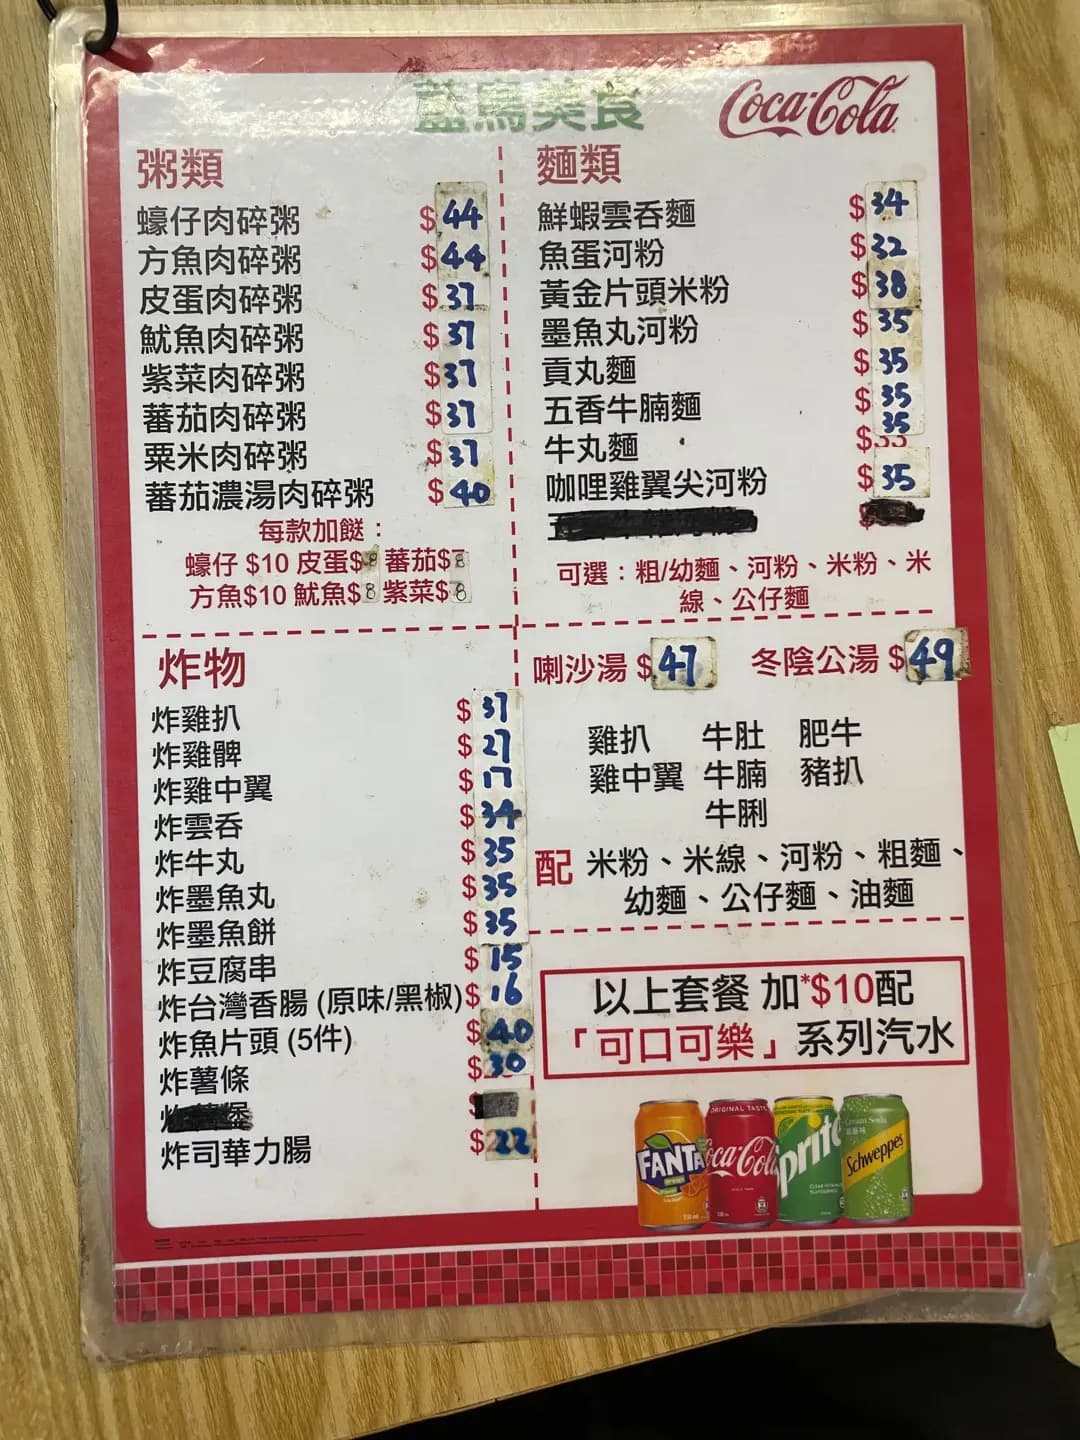 藍鳥美食
Coca-Cola
粥類
蠔仔肉碎粥 $44
方魚肉碎粥 $44
皮蛋肉碎粥 $37
魷魚肉碎粥 $37
紫菜肉碎粥 $37
蕃茄肉碎粥 $37
粟米肉碎粥 $37
蕃茄濃湯肉碎粥 $40
每款加餸：
蠔仔 $10 皮蛋$8 蕃茄$8
方魚$10 魷魚$8 紫菜$8
麵類
鮮蝦雲吞麵 $34
魚蛋河粉 $32
黃金片頭米粉 $38
墨魚丸河粉 $35
貢丸麵 $35
五香牛腩麵 $35
牛丸麵 $35
咖哩雞翼尖河粉 $35
可選：粗/幼麵、河粉、米粉、米
線、公仔麵
炸物
炸雞扒 $37
炸雞髀 $27
炸雞中翼 $17
炸雲吞 $34
炸牛丸 $35
炸墨魚丸 $35
炸墨魚餅 $35
炸豆腐串 $15
炸台灣香腸 (原味/黑椒) $16
炸魚片頭 (5件) $40
炸薯條 $30
炸司華力腸 $22
喇沙湯 $47 冬陰公湯 $49
雞扒 牛肚 肥牛
雞中翼 牛腩 豬扒
牛脷
配 米粉、米線、河粉、粗麵、
幼麵、公仔麵、油麵
以上套餐 加*$10配
「可口可樂」系列汽水
FANTA
ORIGINAL TASTE
Coca-Cola
Sprite
Cream Soda
Schweppes